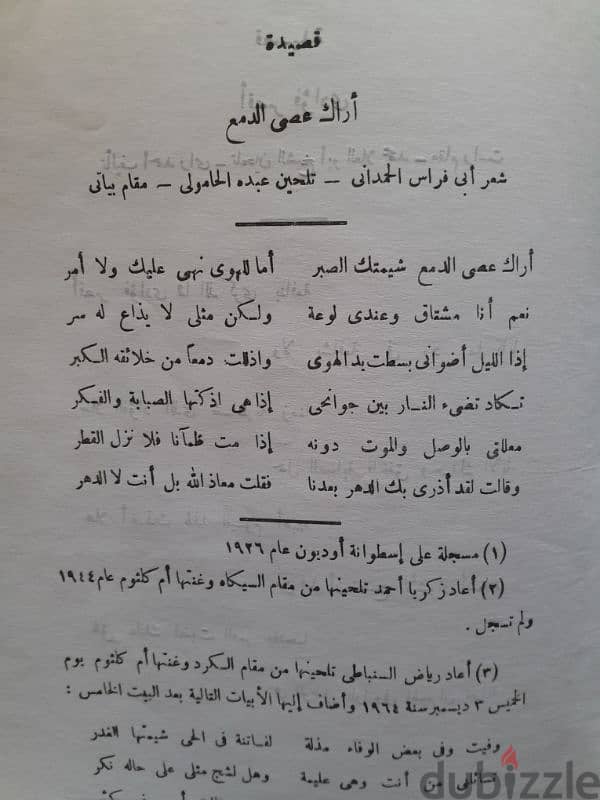 قصيدة
أراك عصى الدمع
شعر أبى فراس الحمدانى — تلحين عبده الحامولى — مقام بياتى
أراك عصى الدمع شيمتك الصبر أما للهوى نهى عليك ولا أمر
نعم أنا مشتاق وعندى لوعة ولكن مثلى لا يذاع له سر
إذا الليل أضوانى بسطت يد الهوى واذللت دمعاً من خلائقه الكبر
تكاد تضىء النار بين جوانحى إذا هى اذكتها الصبابة والفكر
معللتى بالوصل والموت دونه إذا مت ظمآنا فلا نزل القطر
وقالت لقد أذرى بك الدهر بعدنا فقلت معاذ الله بل أنت لا الدهر
(١) مسجلة على إسطوانة أوديون عام ١٩٢٦
(٢) أعاد زكريا أحمد تلحينها من مقام السيكاه وغنتها أم كلثوم عام ١٩٤٤
ولم تسجل .
(٣) أعاد رياض السنباطى تلحينها من مقام السكرد وغنتها أم كلثوم يوم
الخميس ٣ ديسمبر سنة ١٩٦٤ وأضاف إليها الأبيات التالية بعد البيت الخامس :
وفيت وفى بعض الوفاء مذلة لفاتنة فى الحى شيمتها الغدر
تسائلنى من أنت وهى عليمة وهل لشج مثلى على حاله نكر
dubizzle